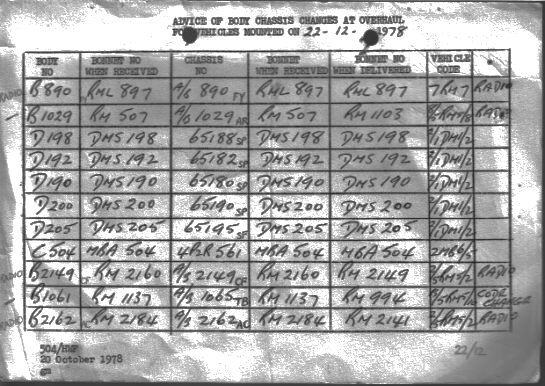 ADVICE OF BODY CHASSIS CHANGES AT OVERHAUL
FOR VEHICLES MOUNTED ON 22-12-1978
BODY NO BONNET NO WHEN RECEIVED CHASSIS NO BONNET WHEN RECEIVED BONNET NO WHEN DELIVERED VEHICLE CODE
RADIO B890 RML 897 A/S 890 FY RML 897 RML 897 7RM7 RADIO
B1029 RM 507 A/S 1029 AR RM 507 RM 1103
D198 DMS 198 65188 SP DMS 198 DMS 198 2/1DM1/2
D192 DMS 192 65182 SP DMS 192 DMS 192 2/1DM1/2
D190 DMS 190 65180 SP DMS 190 DMS 190 2/1DM1/2
D200 DMS 200 65190 SP DMS 200 DMS 200 2/1DM1/2
D205 DMS 205 65195 SP DMS 205 DMS 205 2/1DM1/2
C504 MBA 504 4PR561 MBA 504 MBA 504
RADIO B2149 CF RM 2160 A/S 2149 CF RM 2160 RM 2149 RADIO
B1061 RM 1137 A/S 1065 TB RM 1137 RM 994 CODE CHANGE
RADIO B2162 RM 2184 A/S 2162 AC RM 2184 RM 2141 RADIO
504/HWF 22/12
20 October 1978